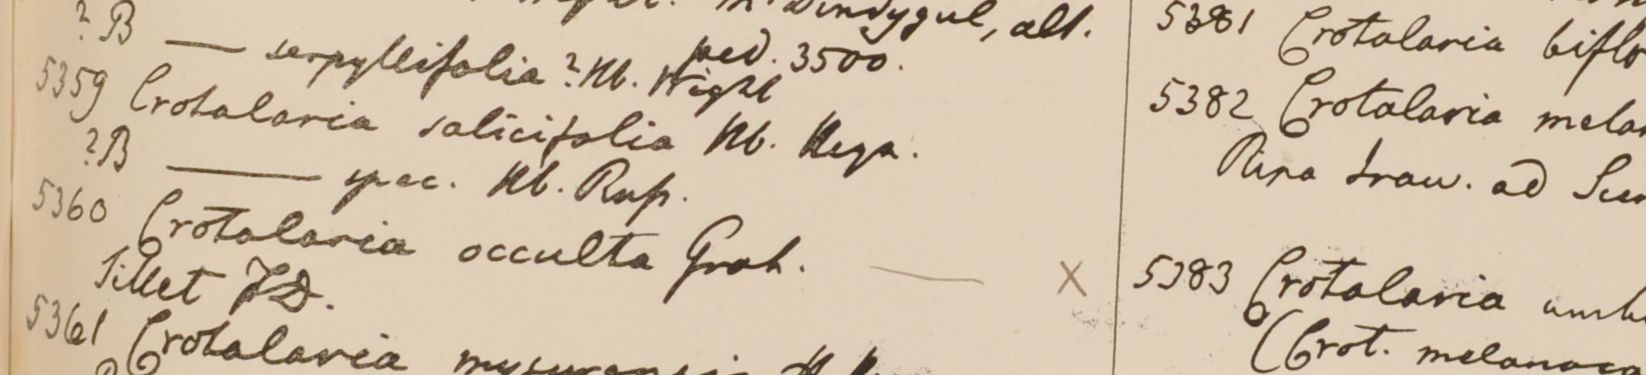 Dindygul, alt.
ped. 3500.
? B — serpyllifolia ? Hb. Wight
5359 Crotalaria salicifolia Hb. Heyn.
? B — spec. Hb. Rup.
5360 Crotalaria occulta Grah. — X
Sillet FD.
5361 Crotalaria mysurensis
5381 Crotalaria biflo
5382 Crotalaria melan
Ripa Iraw. ad
5383 Crotalaria umb
(Crot. melanoca